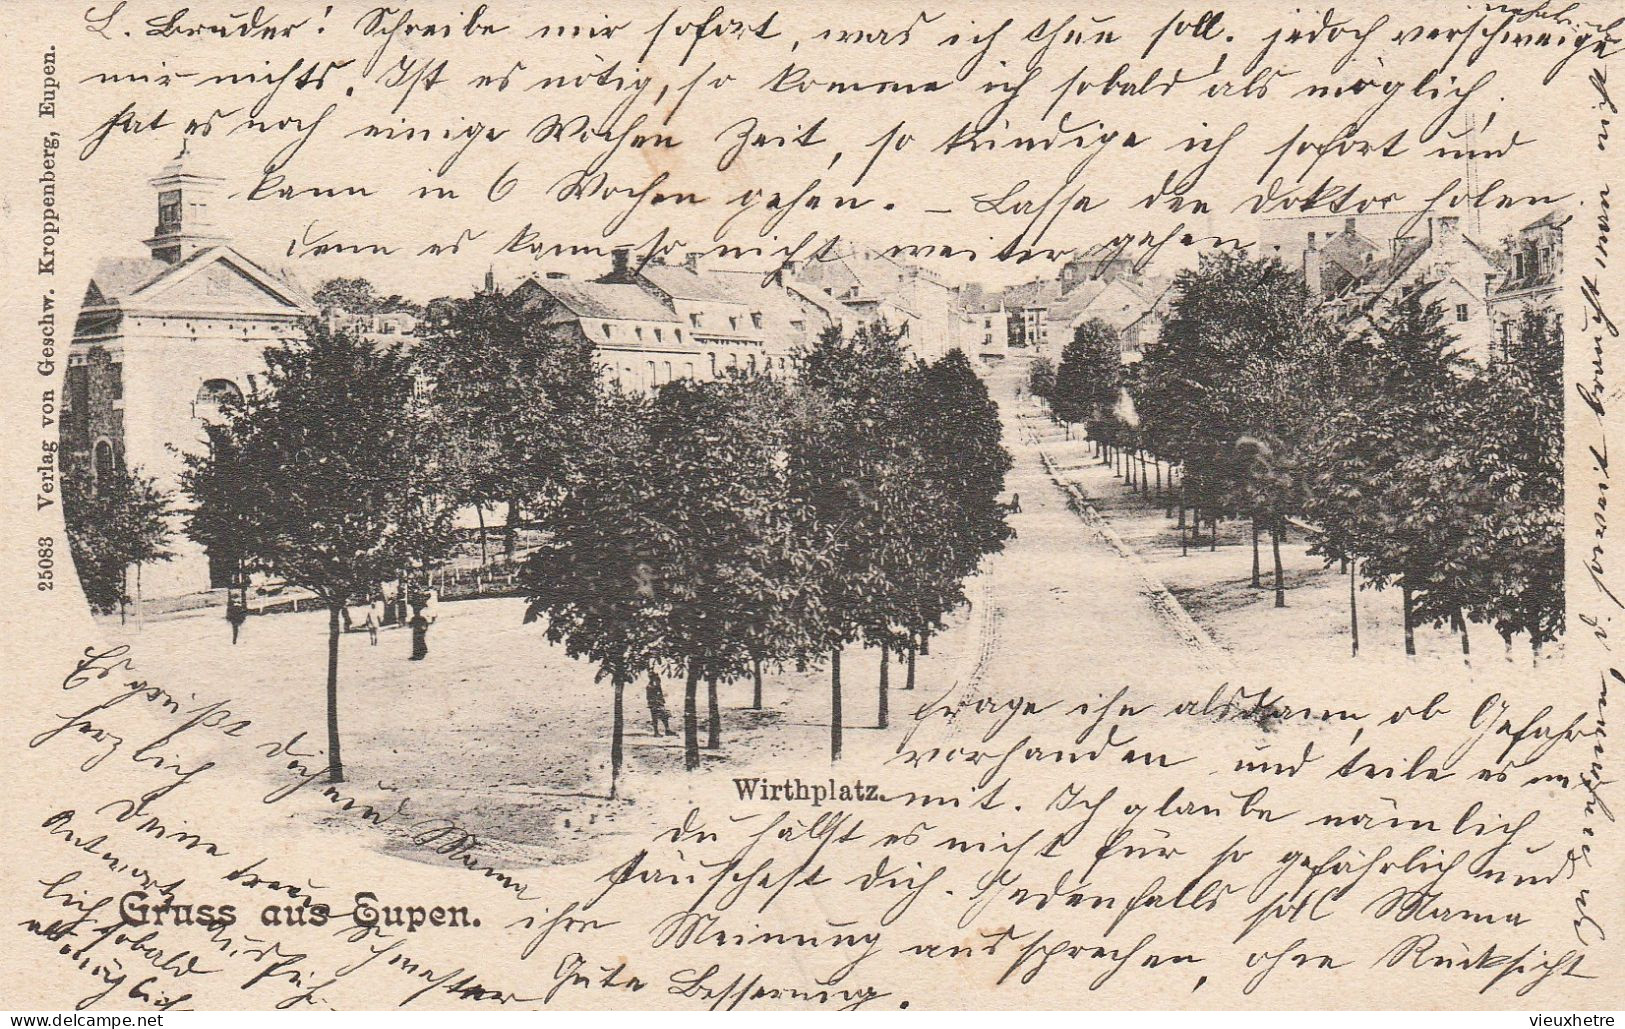 L. Bruder! Schreibe mir sofort, was ich thun soll, jedoch verschweige
mir nichts. Ist es nötig, so komme ich sobald als möglich,
hat es noch einige Wochen Zeit, so kündige ich sofort und
kann in 6 Wochen gehen. – Lasse den Doktor holen,
denn es kann so nicht weiter gehen.
frage ihn alsdann, ob Gefahr
vorhanden und teile es
mit. Ich glaube nämlich
du hälst es nicht für so gefährlich und
täuschest dich. Jedenfalls soll Mama
ihre Meinung aussprechen, ohne Rücksicht
Gute Besserung.
Es grüßt Dich und Mama
herzlich
Deine treue Schwester
Antwort
sobald
als möglich
Wirthplatz.
Gruss aus Eupen.
25083 Verlag von Geschw. Kroppenberg, Eupen.
vieuxhetre